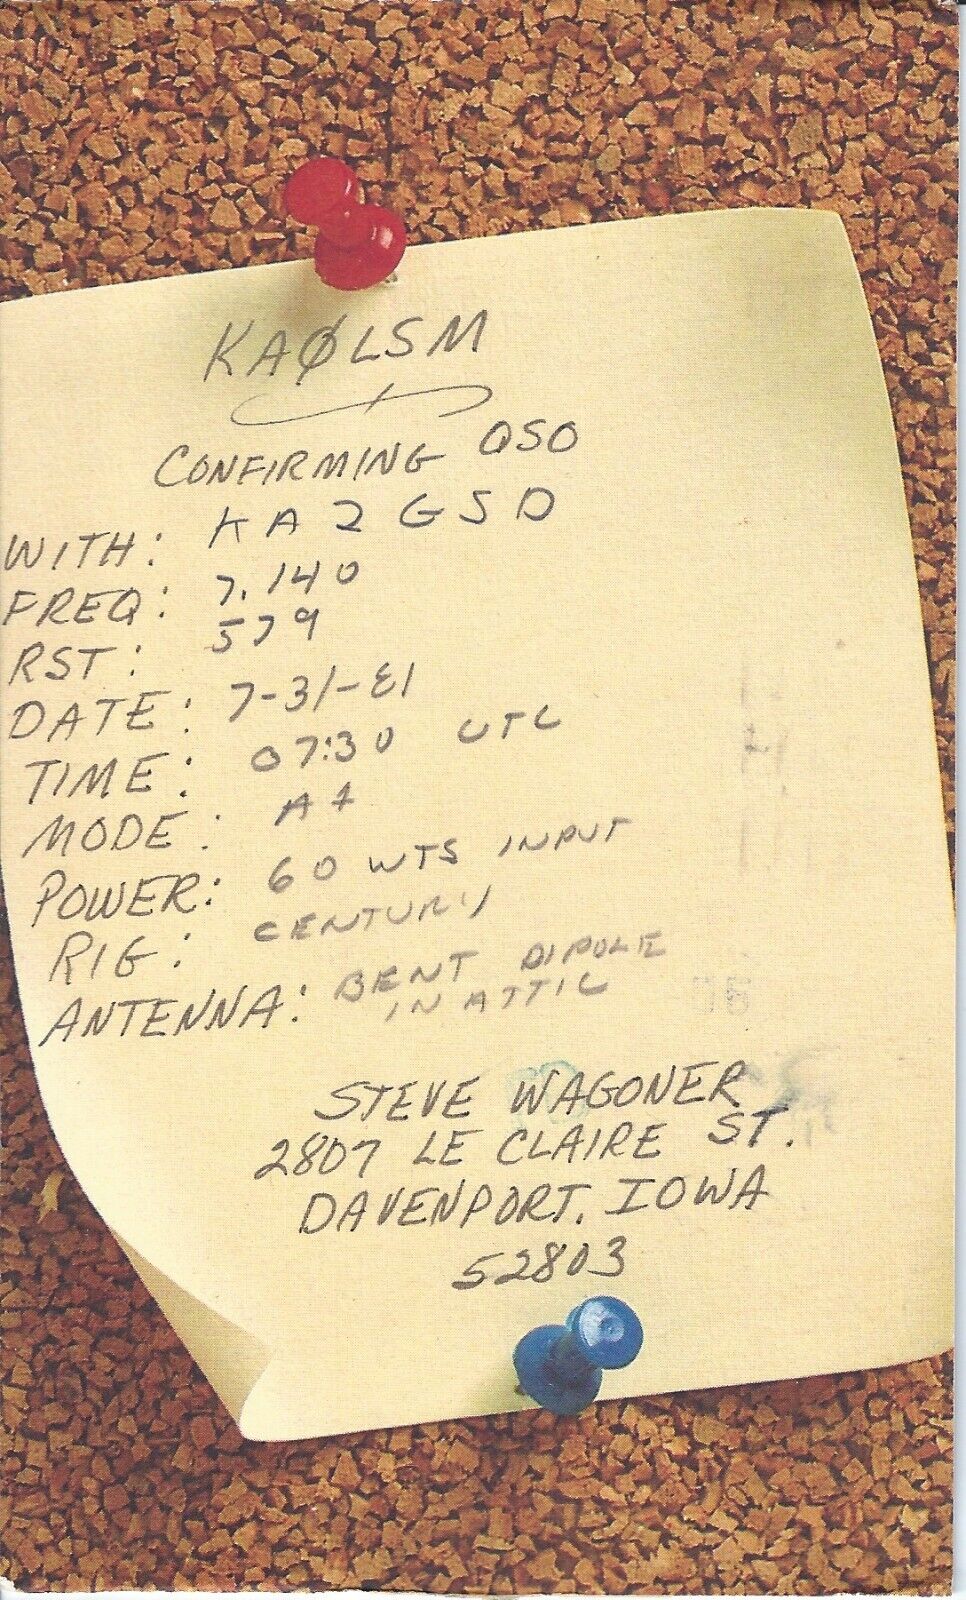 KAØLSM
CONFIRMING QSO
WITH: KA2GSD
FREQ: 7.140
RST: 579
DATE: 7-31-81
TIME: 07:30 UTC
MODE: A1
POWER: 60 WTS INPUT
RIG: CENTURY
ANTENNA: BENT DIPOLE
IN ATTIC
STEVE WAGONER
2807 LE CLAIRE ST.
DAVENPORT, IOWA
52803